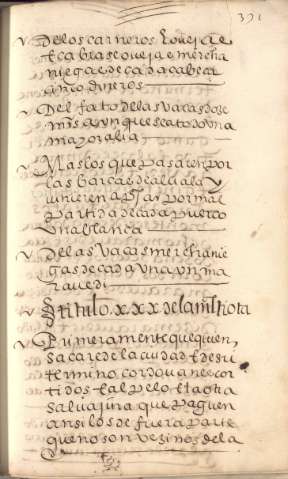 391
De los carneros E ovejas E
E cabras e oveja e mercha
niega e de cada cabeça
cinco dineros
Del fato de las vacas dose
mrs aunque sea todo una
mayoralia
Mas los que pasaren por
las barcas de alcala y
vinieren a por mar
partida de cada puerco
una blanca
De las vacas merchanie
gas de cada una un ma
ravedi
titulo xxx de la miliota
Primeramente que quien
sacare de la cibdad E de su
termino cordovanes cor
tidos E al pelo E la otra
salvajina que paguen
ansi los de fuera parte
que no son vezinos de la